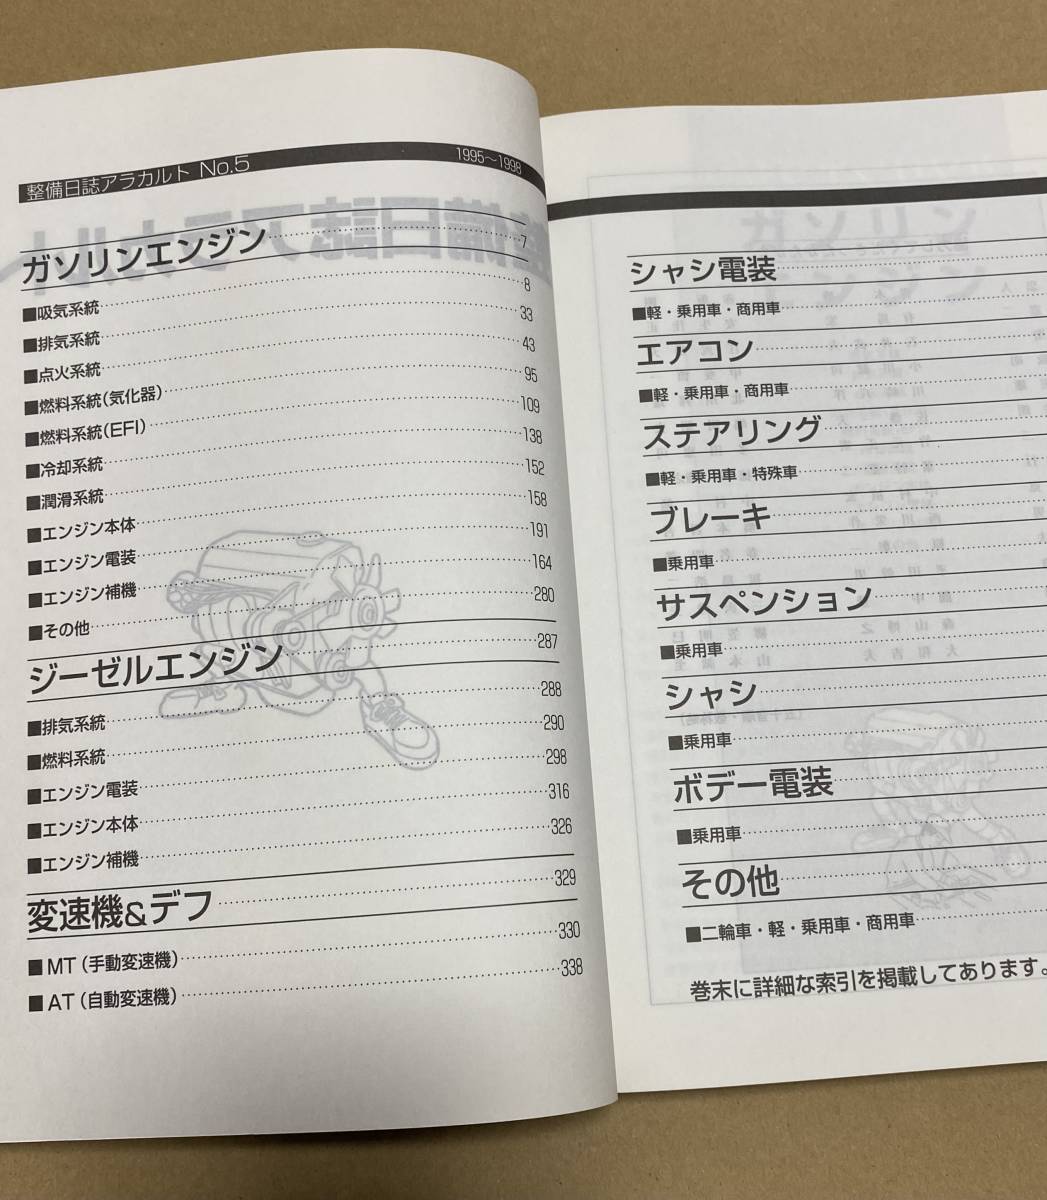 整備日誌アラカルト No.5 1995～1998
ガソリンエンジン 7
■吸気系統 8
■排気系統 33
■点火系統 43
■燃料系統(気化器) 95
■燃料系統(EFI) 109
■冷却系統 138
■潤滑系統 152
■エンジン本体 158
■エンジン電装 191
■エンジン補機 164
■その他 280
ジーゼルエンジン 287
■排気系統 288
■燃料系統 290
■エンジン電装 298
■エンジン本体 316
■エンジン補機 326
変速機&デフ 329
■MT(手動変速機) 330
■AT(自動変速機) 338
シャシ電装
■軽・乗用車・商用車
エアコン
■軽・乗用車・商用車
ステアリング
■軽・乗用車・特殊車
ブレーキ
■乗用車
サスペンション
■乗用車
シャシ
■乗用車
ボデー電装
■乗用車
その他
■二輪車・軽・乗用車・商用車
巻末に詳細な索引を掲載してあります。